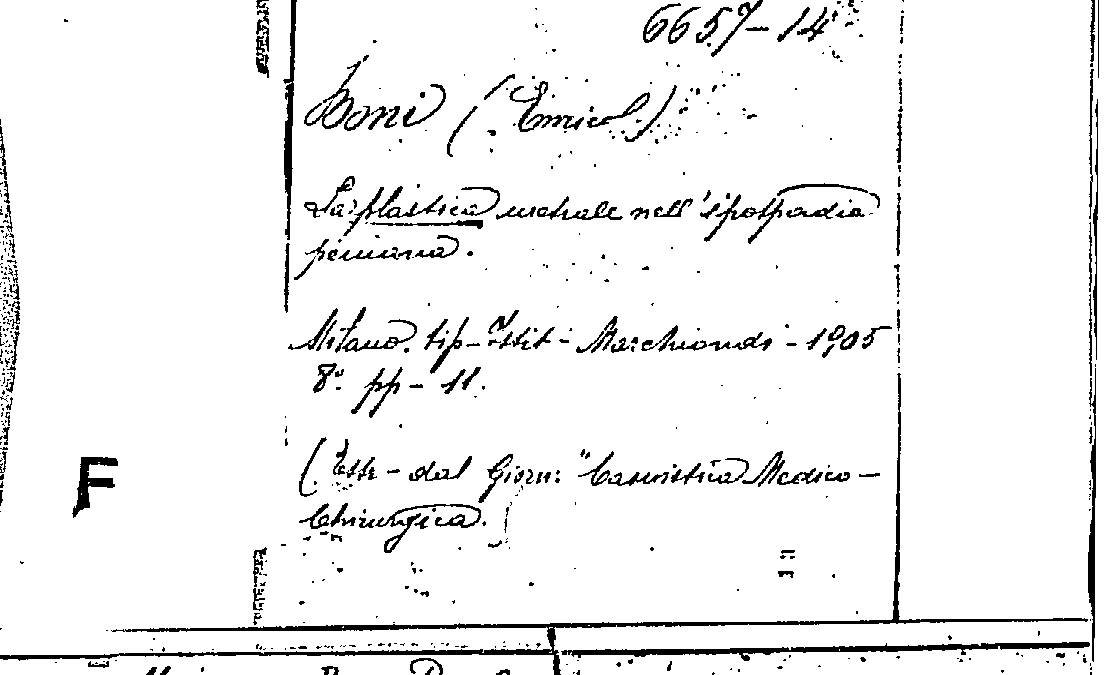 6657-14
Boni (Enrico.)
La plastica uretrale nell'ipospadia
peniana.
Milano. tip-Istit- Marchiondi - 1905
8° pp- 11.
(Estr- dal Giorn: "Casuistica Medico-
Chirurgica.)
F